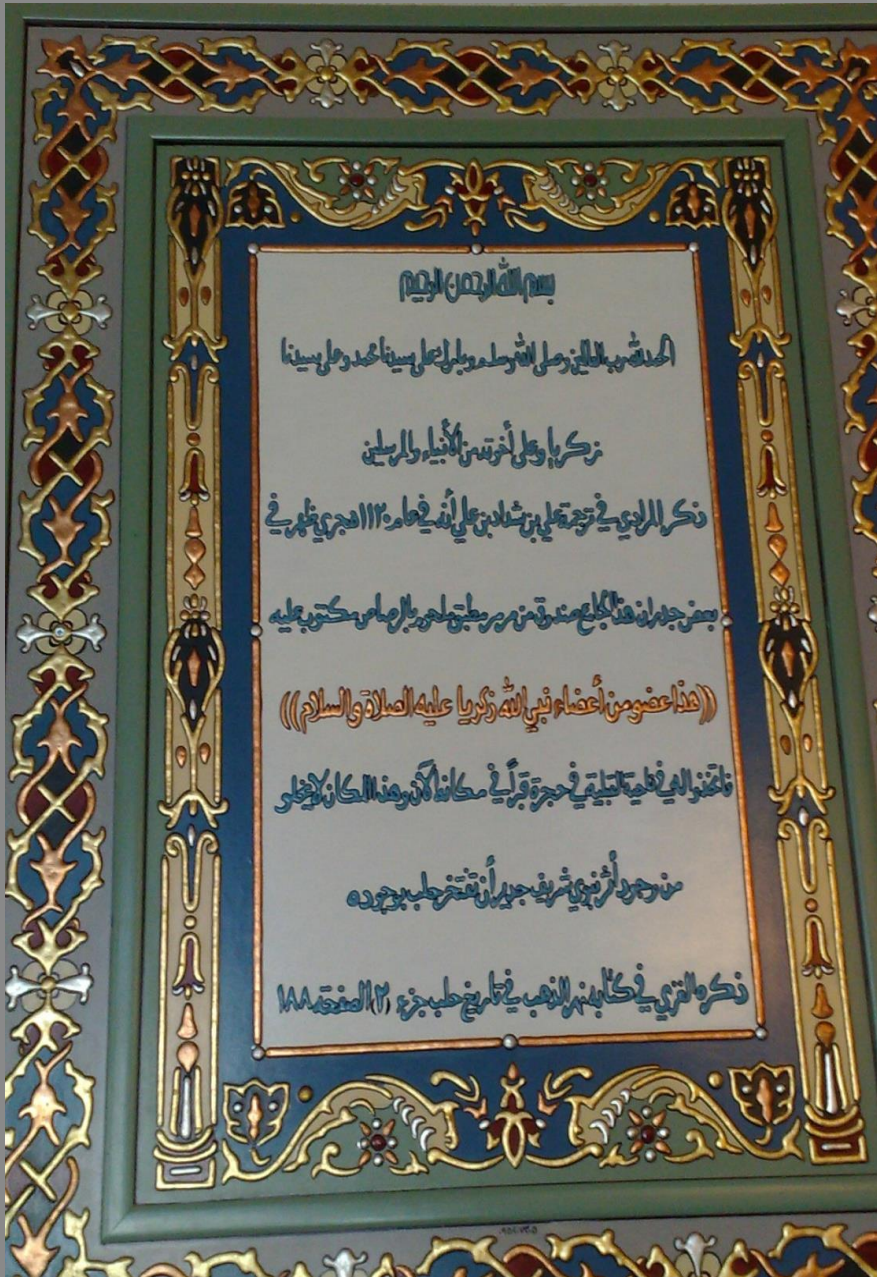 بسم الله الرحمن الرحيم
الحمد لله رب العالمين وصلى الله وسلم وبارك على سيدنا محمد وعلى سيدنا
زكريا وعلى أخوته من الأنبياء والمرسلين
ذكر المرادي في ترجمة علي بن شداد بن علي أنه في عام ١١٢٠ هجري ظهر في
بعض جدران هذا الجامع صندوق من مرمر مطبق ملحوم بالرصاص مكتوب عليه
((هذا عضو من أعضاء نبي الله زكريا عليه الصلاة والسلام))
فاتخذوا له في ناحية القبلية في حجرة قبراً في مكانه الآن وهذا المكان لا يخلو
من وجود أثر نبوي شريف جدير أن تفتخر حلب بوجوده
ذكره الغزي في كتابه نهر الذهب في تاريخ حلب جزء (٢) الصفحة ١٨٨